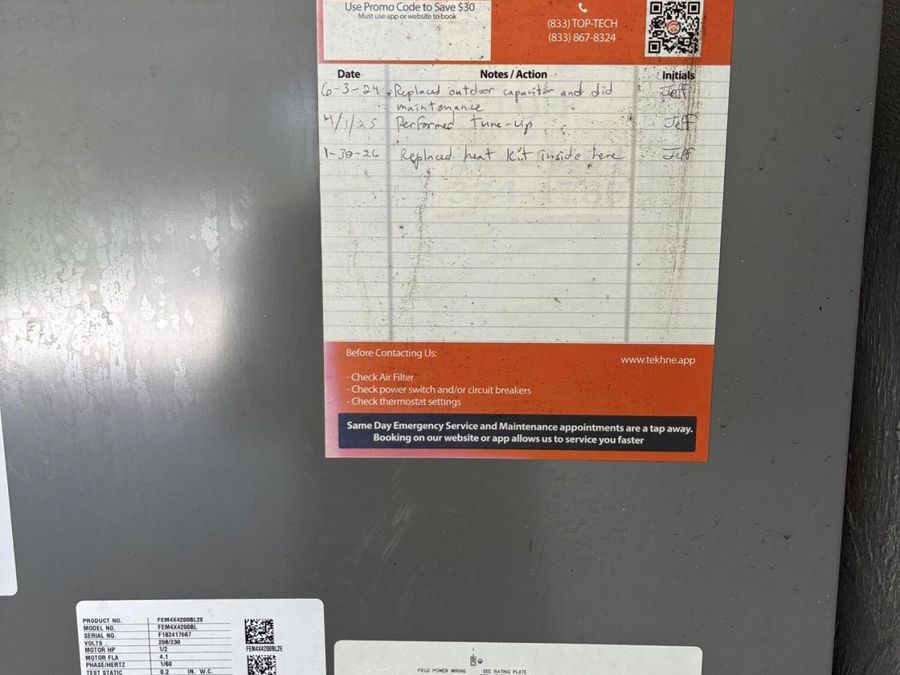 Use Promo Code to Save $30
Must use app or website to book
(833) TOP-TECH
(833) 867-8324
Date Notes / Action Initials
6-3-24 Replaced outdoor capacitor and did Jeff
maintenance
4/1/25 Performed Tune-Up Jeff
1-30-26 Replaced heat kit inside here Jeff
Before Contacting Us:
www.tekhne.app
- Check Air Filter
- Check power switch and/or circuit breakers
- Check thermostat settings
Same Day Emergency Service and Maintenance appointments are a tap away.
Booking on our website or app allows us to service you faster
PRODUCT NO. FEM4X4200BL2E
MODEL NO. FEM4X4200BL
SERIAL NO. F182417667
VOLTS 208/230
MOTOR HP 1/2
MOTOR FLA 4.1
PHASE/HERTZ 1/60
TEST STATIC 0.2 IN. W.C.
FEM4X4200BL2E
FIELD POWER WIRING SEE RATING PLATE